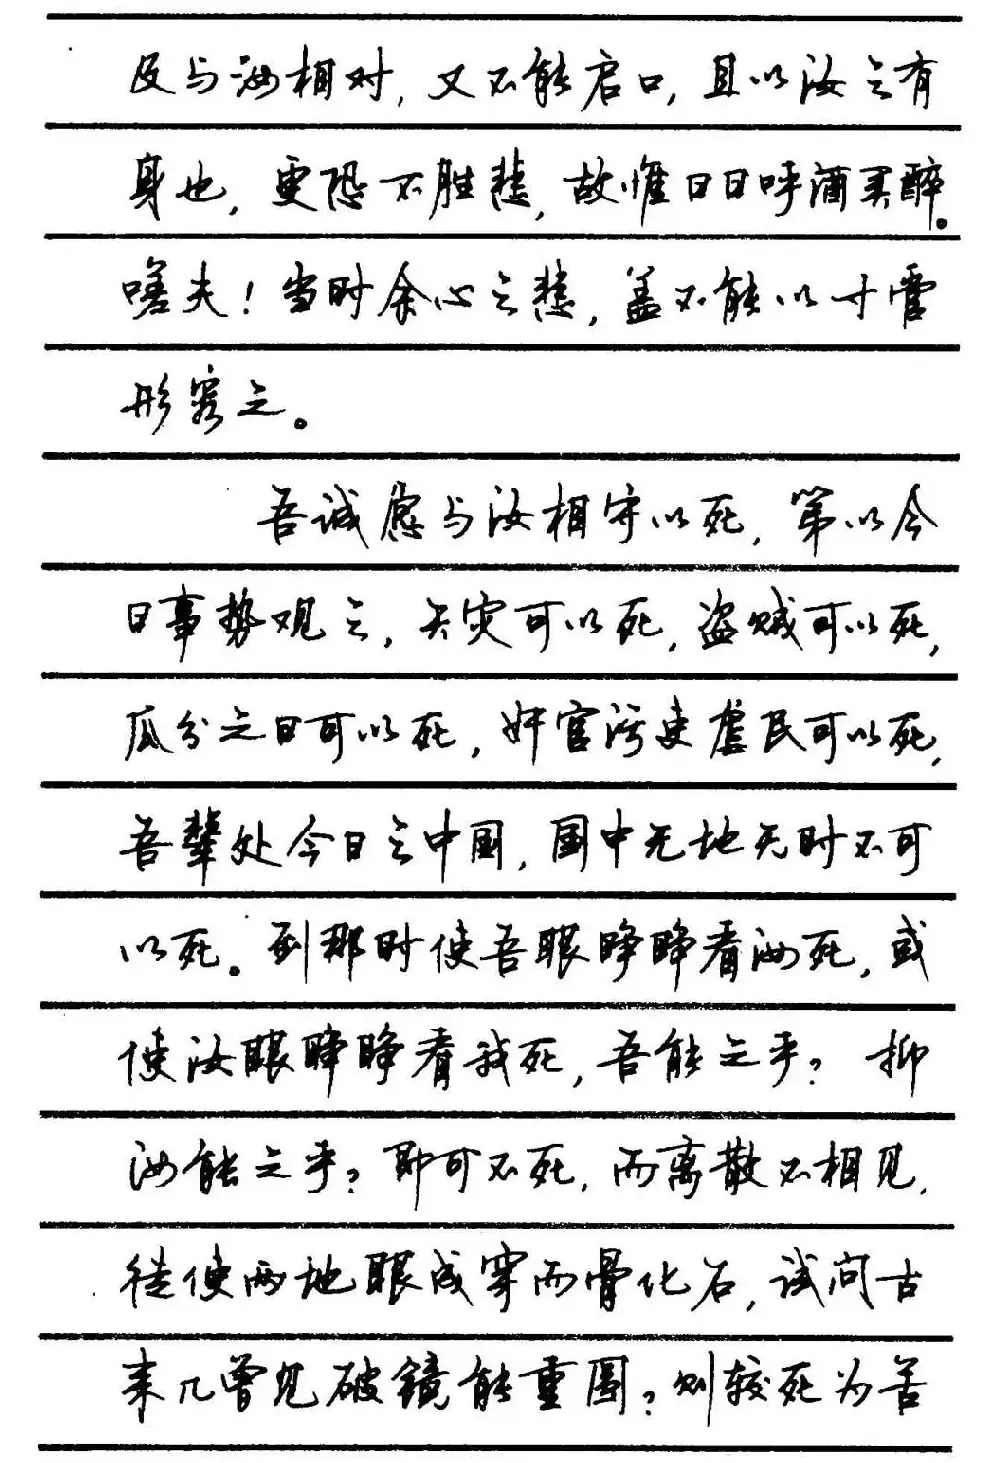 及与汝相对，又不能启口，且以汝之有
身也，更恐不胜悲，故惟日日呼酒买醉。
嗟夫！当时余心之悲，盖不能以寸管
形容之。
吾诚愿与汝相守以死，第以今
日事势观之，天灾可以死，盗贼可以死，
瓜分之日可以死，奸官污吏虐民可以死，
吾辈处今日之中国，国中无地无时不可
以死。到那时使吾眼睁睁看汝死，或
使汝眼睁睁看我死，吾能之乎？抑
汝能之乎？即可不死，而离散不相见，
徒使两地眼成穿而骨化石，试问古
来几曾见破镜能重圆？则较死为苦